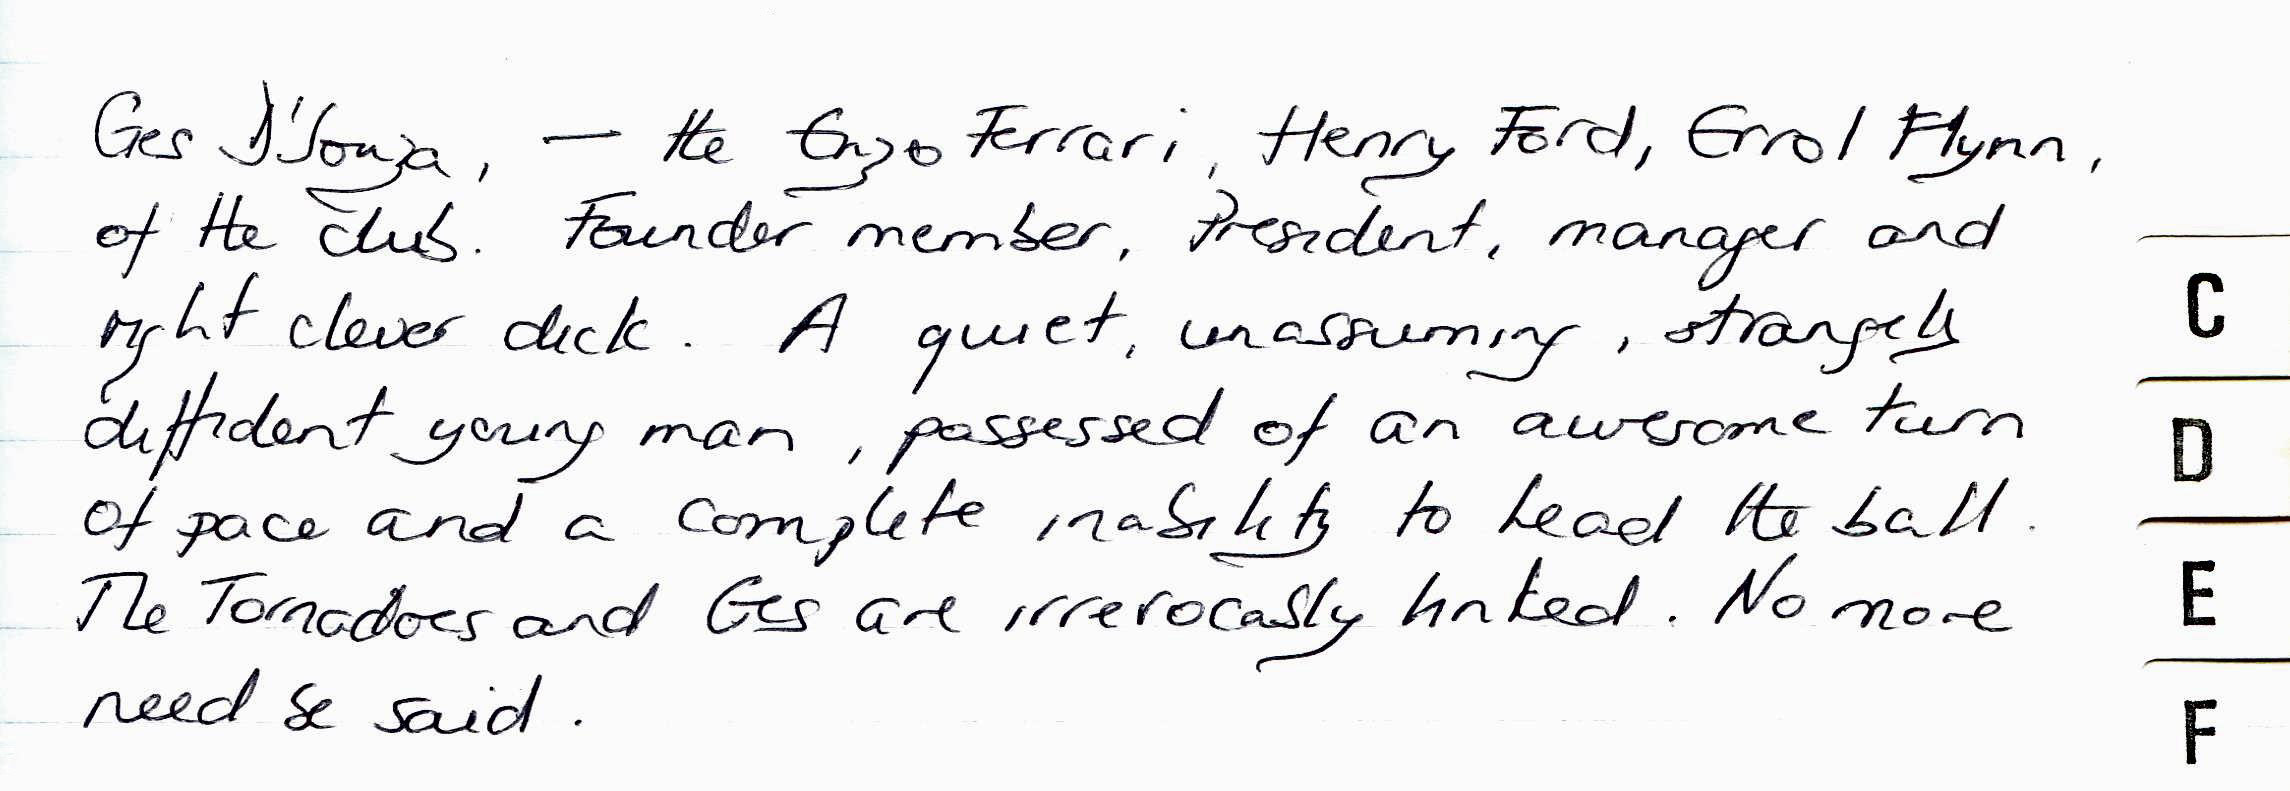 Ges D'Souza, — the Enzo Ferrari, Henry Ford, Errol Flynn,
of the club. Founder member, President, manager and
right clever dick. A quiet, unassuming, strangely
diffident young man, possessed of an awesome turn
of pace and a complete inability to head the ball.
The Tornadoes and Ges are irrevocably linked. No more
need be said.
C
D
E
F